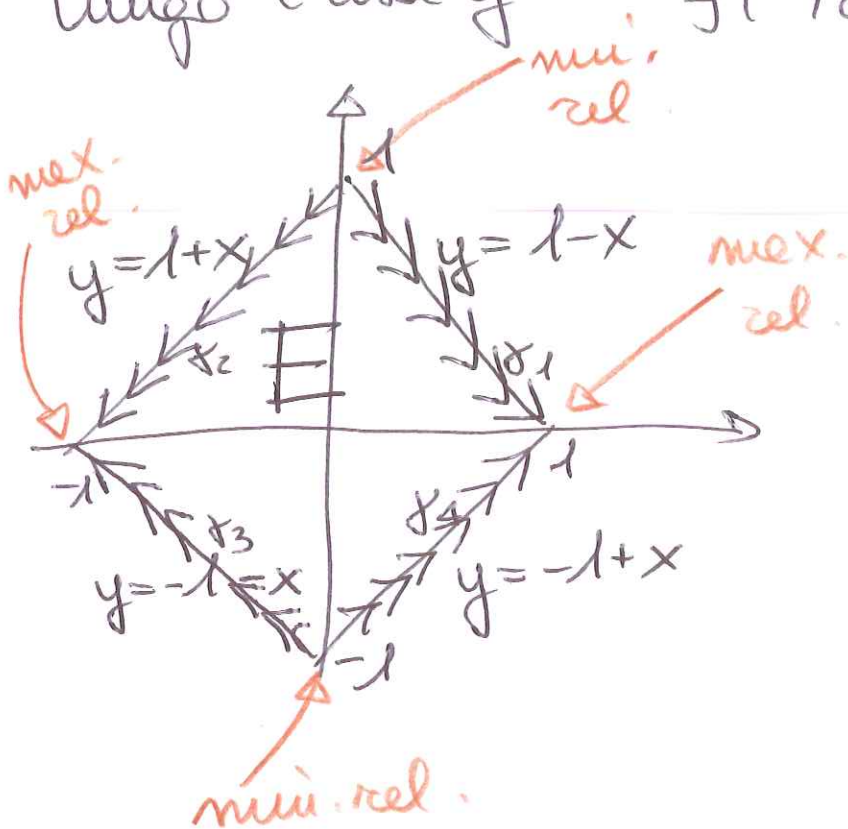 lungo
min.
rel
1
max.
rel.
y=1+x
y=1-x
max.
rel.
γ2
E
γ1
-1
1
γ3
γ4
y=-1-x
y=-1+x
-1
min. rel.